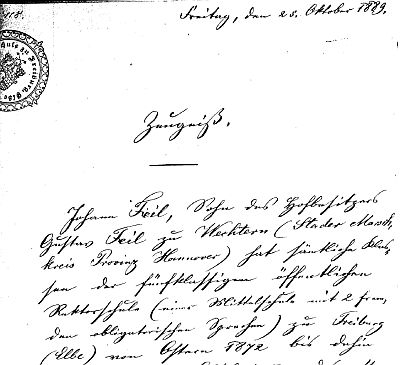 Freitag, den 25. Oktober 1889.
Zeugniß.
Johann Feil, Sohn des Hofbesitzers
Gustav Feil zu Wechtern (Stader Marsch-
kreis Provinz Hannover) hat sämtliche Klas-
sen der fünfklassigen öffentlichen
Rektorschule (einer Mittelschule mit 2 frem-
den obligatorischen Sprachen) zu Freiburg
(Elbe) von Ostern 1872 bis dahin